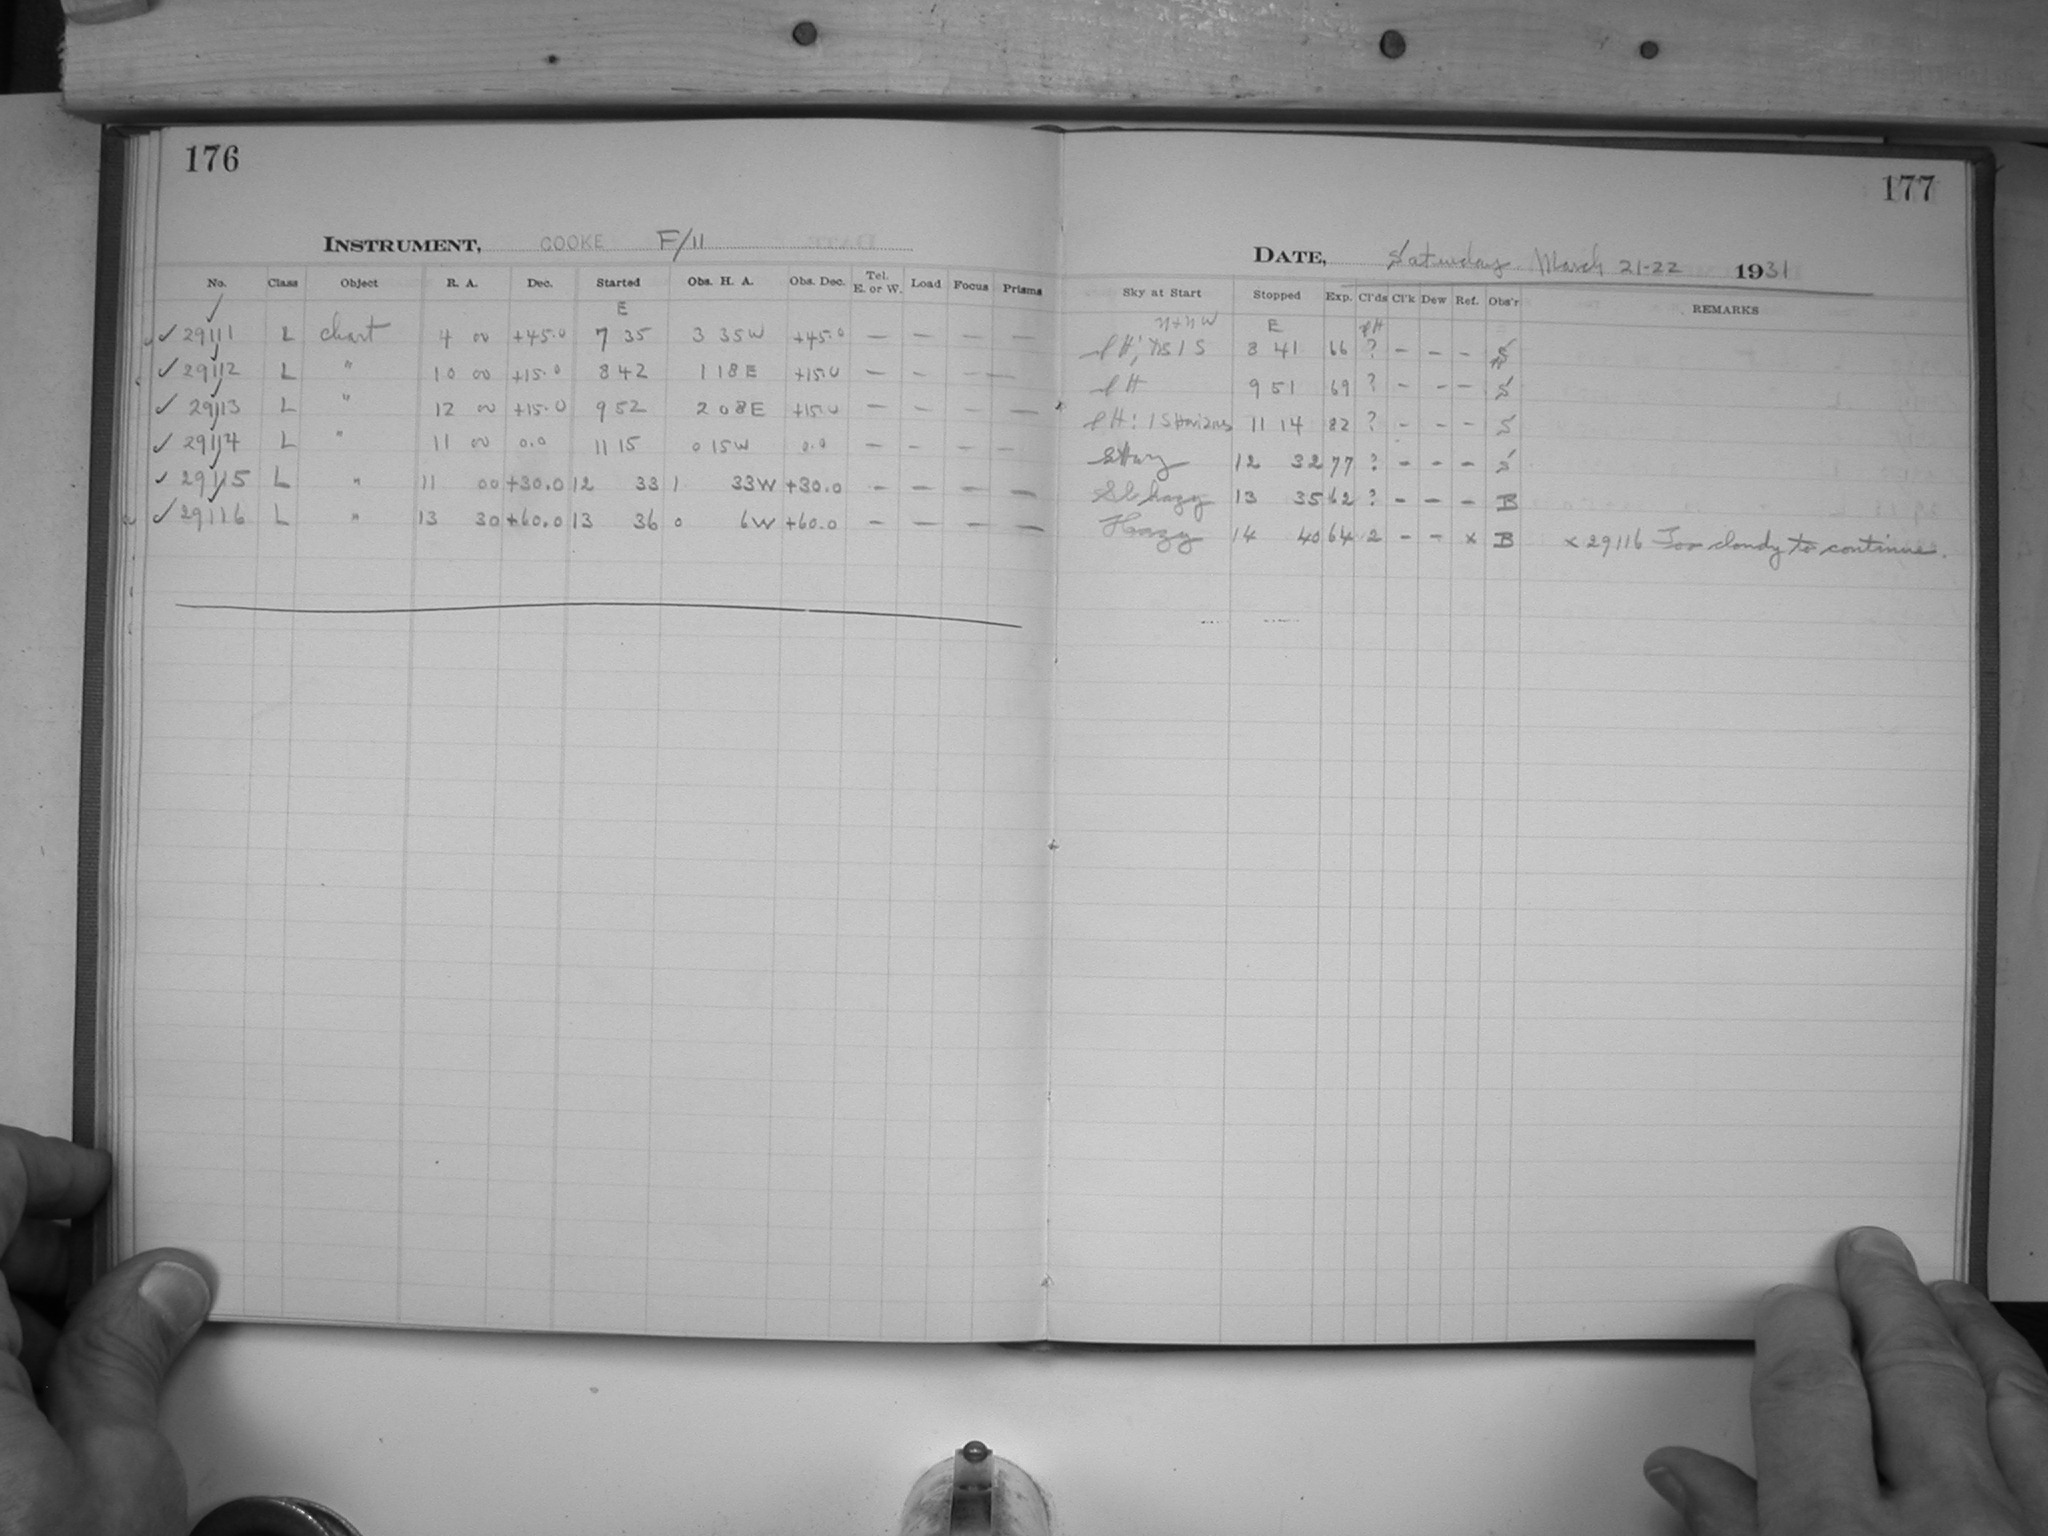 176
INSTRUMENT, COOKE F/11
No. Class Object R. A. Dec. Started Obs. H. A. Obs. Dec. Tel. E. or W. Load Focus Prisms
E
✓ 29111 L chart 4 00 +45.0 7 35 3 35W +45.0 — — — —
✓ 29112 L " 10 00 +15.0 8 42 1 18E +15.0 — — — —
✓ 29113 L " 12 00 +15.0 9 52 2 08E +15.0 — — — —
✓ 29114 L " 11 00 0.0 11 15 0 15W 0.0 — — — —
✓ 29115 L " 11 00 +30.0 12 33 1 33W +30.0 — — — —
✓ 29116 L " 13 30 +60.0 13 36 0 6W +60.0 — — — —
177
DATE, Saturday March 21-22 1931
Sky at Start Stopped Exp. Cl'ds Cl'k Dew Ref. Obs'r REMARKS
E
8 41 66 ? — — — S
9 51 69 ? — — — S
11 14 82 ? — — — S
12 32 77 ? — — — S
Sl. hazy 13 35 62 ? — — — B
Hazy 14 40 64 2 — — x B x 29116 Too cloudy to continue.